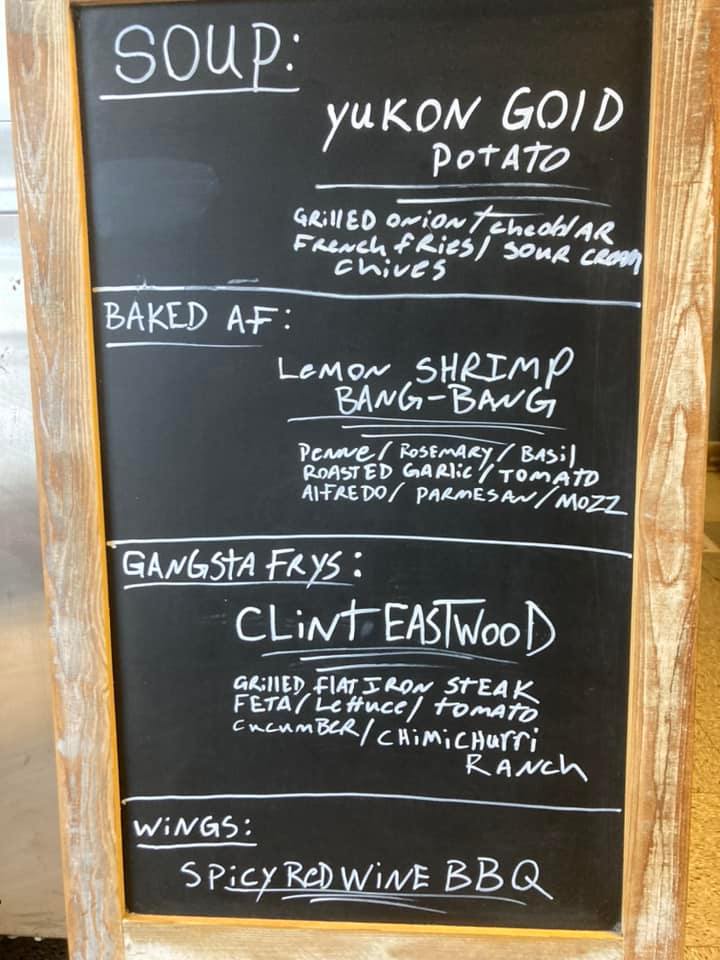 SOUP:
YUKON GOLD
POTATO
GRILLED ONION / CHEDDAR
FRENCH FRIES / SOUR CREAM
CHIVES
BAKED AF:
LEMON SHRIMP
BANG-BANG
PENNE / ROSEMARY / BASIL
ROASTED GARLIC / TOMATO
ALFREDO / PARMESAN / MOZZ
GANGSTA FRYS:
CLINT EASTWOOD
GRILLED FLAT IRON STEAK
FETA / LETTUCE / TOMATO
CUCUMBER / CHIMICHURRI
RANCH
WINGS:
SPICY RED WINE BBQ